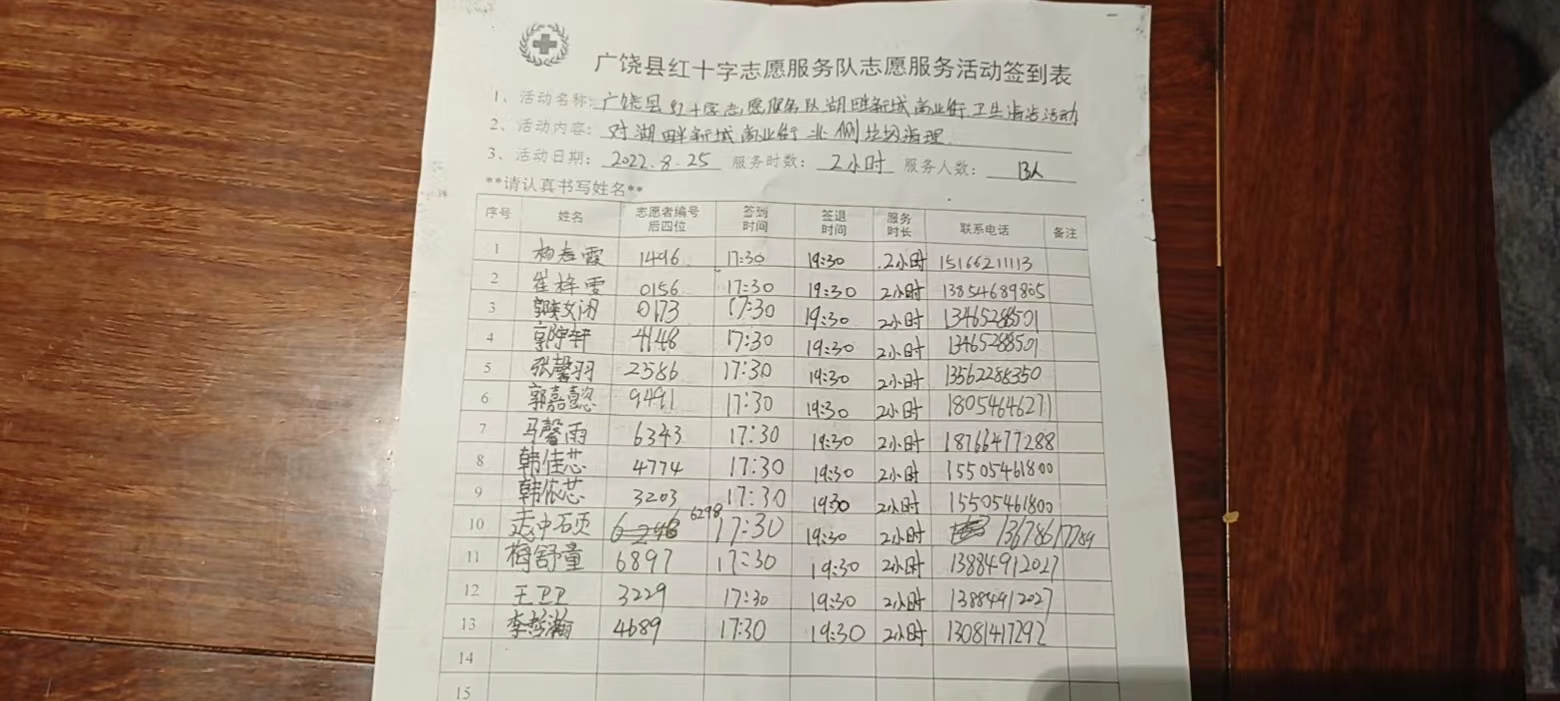 广饶县红十字志愿服务队志愿服务活动签到表
1、活动名称：广饶县红十字志愿服务队湖畔新城商业街卫生清洁活动
2、活动内容：对湖畔新城商业街北侧垃圾清理
3、活动日期：2022.8.25 服务时数：2小时 服务人数：13人
**请认真书写姓名**
序号 姓名 志愿者编号后四位 签到时间 签退时间 服务时长 联系电话 备注
1 杨春霞 1496 17:30 19:30 2小时 15166211113
2 崔梓雯 0156 17:30 19:30 2小时 13854689805
3 0173 17:30 19:30 2小时 13465288501
4 郭宇轩 4148 17:30 19:30 2小时 13465288501
5 张馨羽 2586 17:30 19:30 2小时 13562288350
6 郭嘉懿 9491 17:30 19:30 2小时 18054646271
7 马馨雨 6343 17:30 19:30 2小时 18766477288
8 韩佳芯 4774 17:30 19:30 2小时 15505461800
9 韩依芯 3203 17:30 19:30 2小时 15505461800
10 6298 17:30 19:30 2小时 13678617789
11 梅舒童 6897 17:30 19:30 2小时 13884912027
12 王卫卫 3229 17:30 19:30 2小时 13884912027
13 李哲瀚 4689 17:30 19:30 2小时 13081417292
14
15